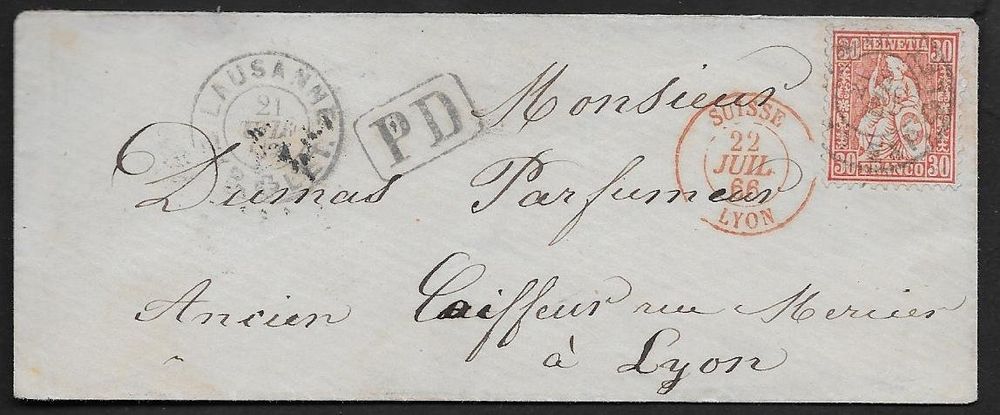 30 HELVETIA 30
30 FRANCO 30
LAUSANNE
21
PD
SUISSE
22
JUIL.
66
LYON
Monsieur
Dumas Parfumeur
Ancien Coiffeur rue Mercier
à Lyon